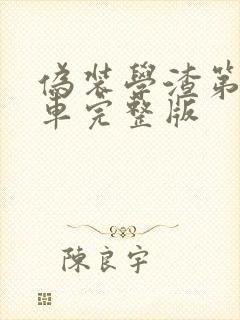 偽裝學渣第
車完整版
陳良宇